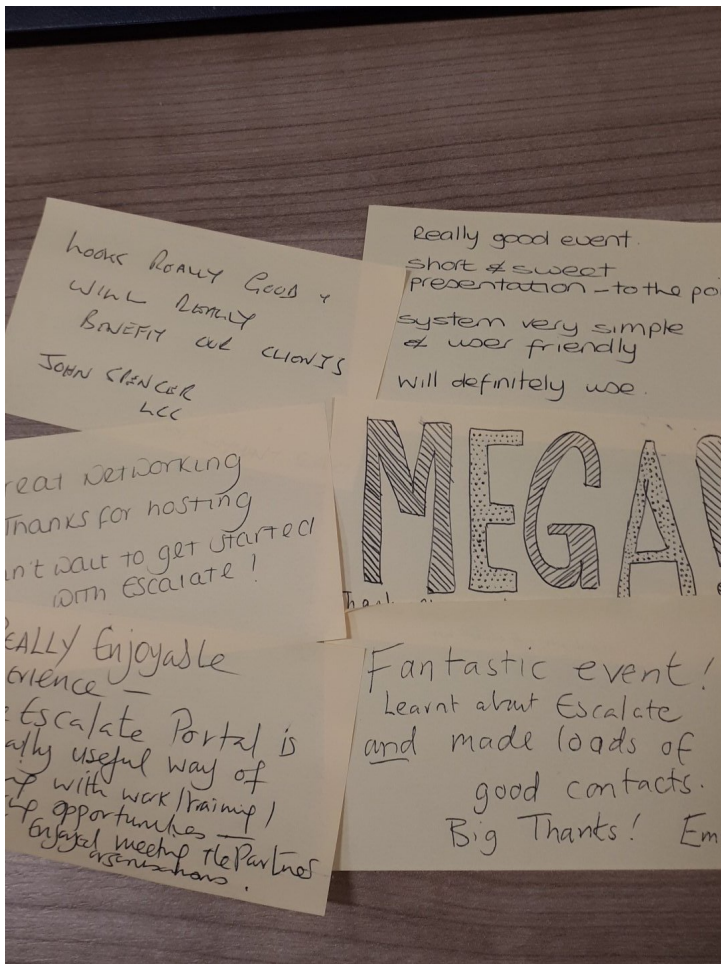 LOOKS REALLY GOOD &
WILL REALLY
BENEFIT OUR CLIENTS
JOHN SPENCER
LCC
Really good event.
short & sweet
presentation - to the po
system very simple
& user friendly
will definitely use.
reat networking
Thanks for hosting
n't wait to get started
with Escalate!
MEGA
Thank
EALLY Enjoyable
erience -
Escalate Portal is
ally useful way of
with work/training/
opportunities -
Enjoyed meeting the Partner
organisations.
Fantastic event!
Learnt about Escalate
and made loads of
good contacts.
Big Thanks! Em